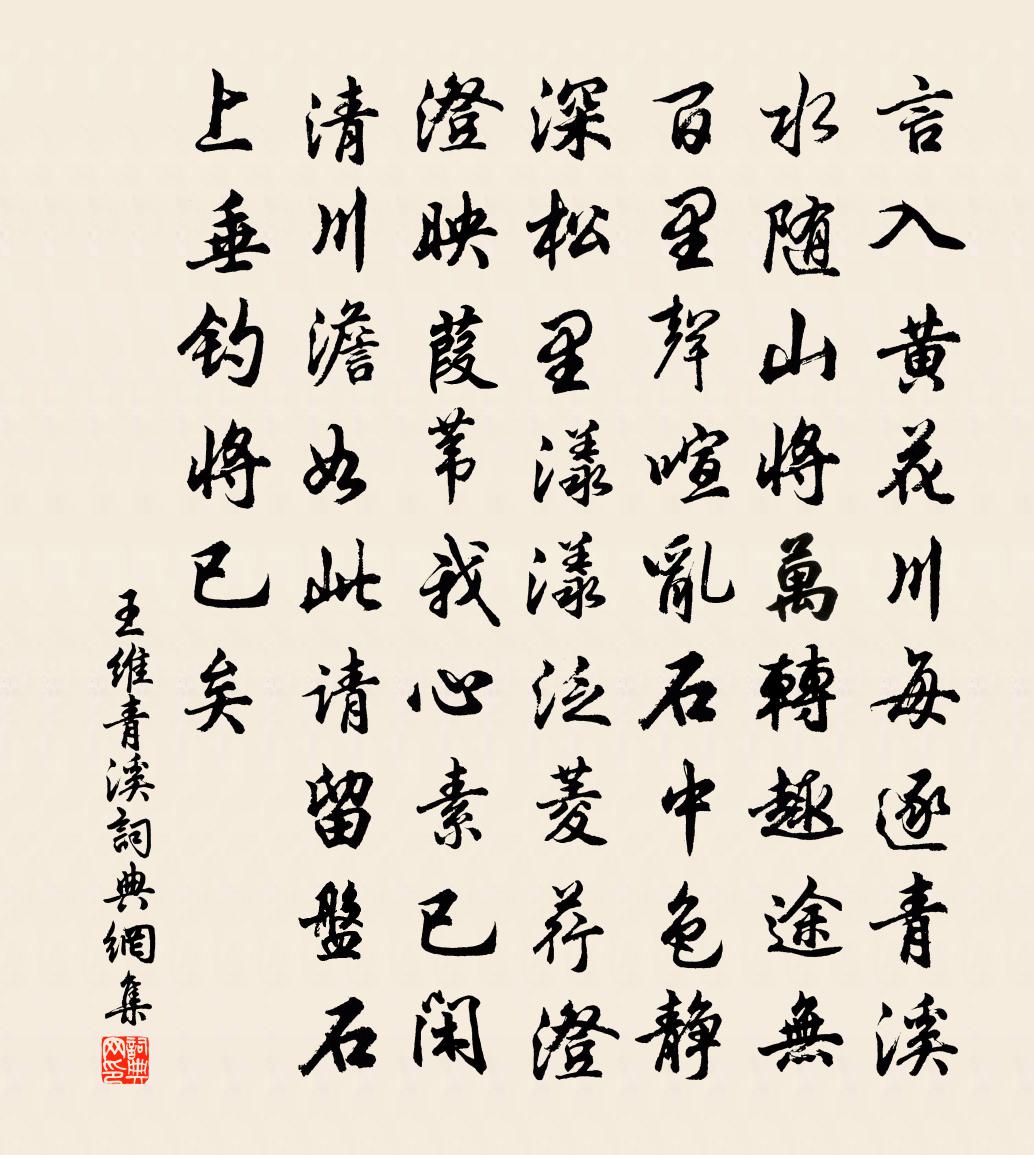 言入黄花川每逐青溪
水随山将萬轉趣途無
百里聲喧亂石中色静
深松里漾漾泛菱荇澄
澄映葭苇我心素已闲
清川澹如此请留盤石
上垂钓将已矣
王维青溪詞典網集
詞典网印